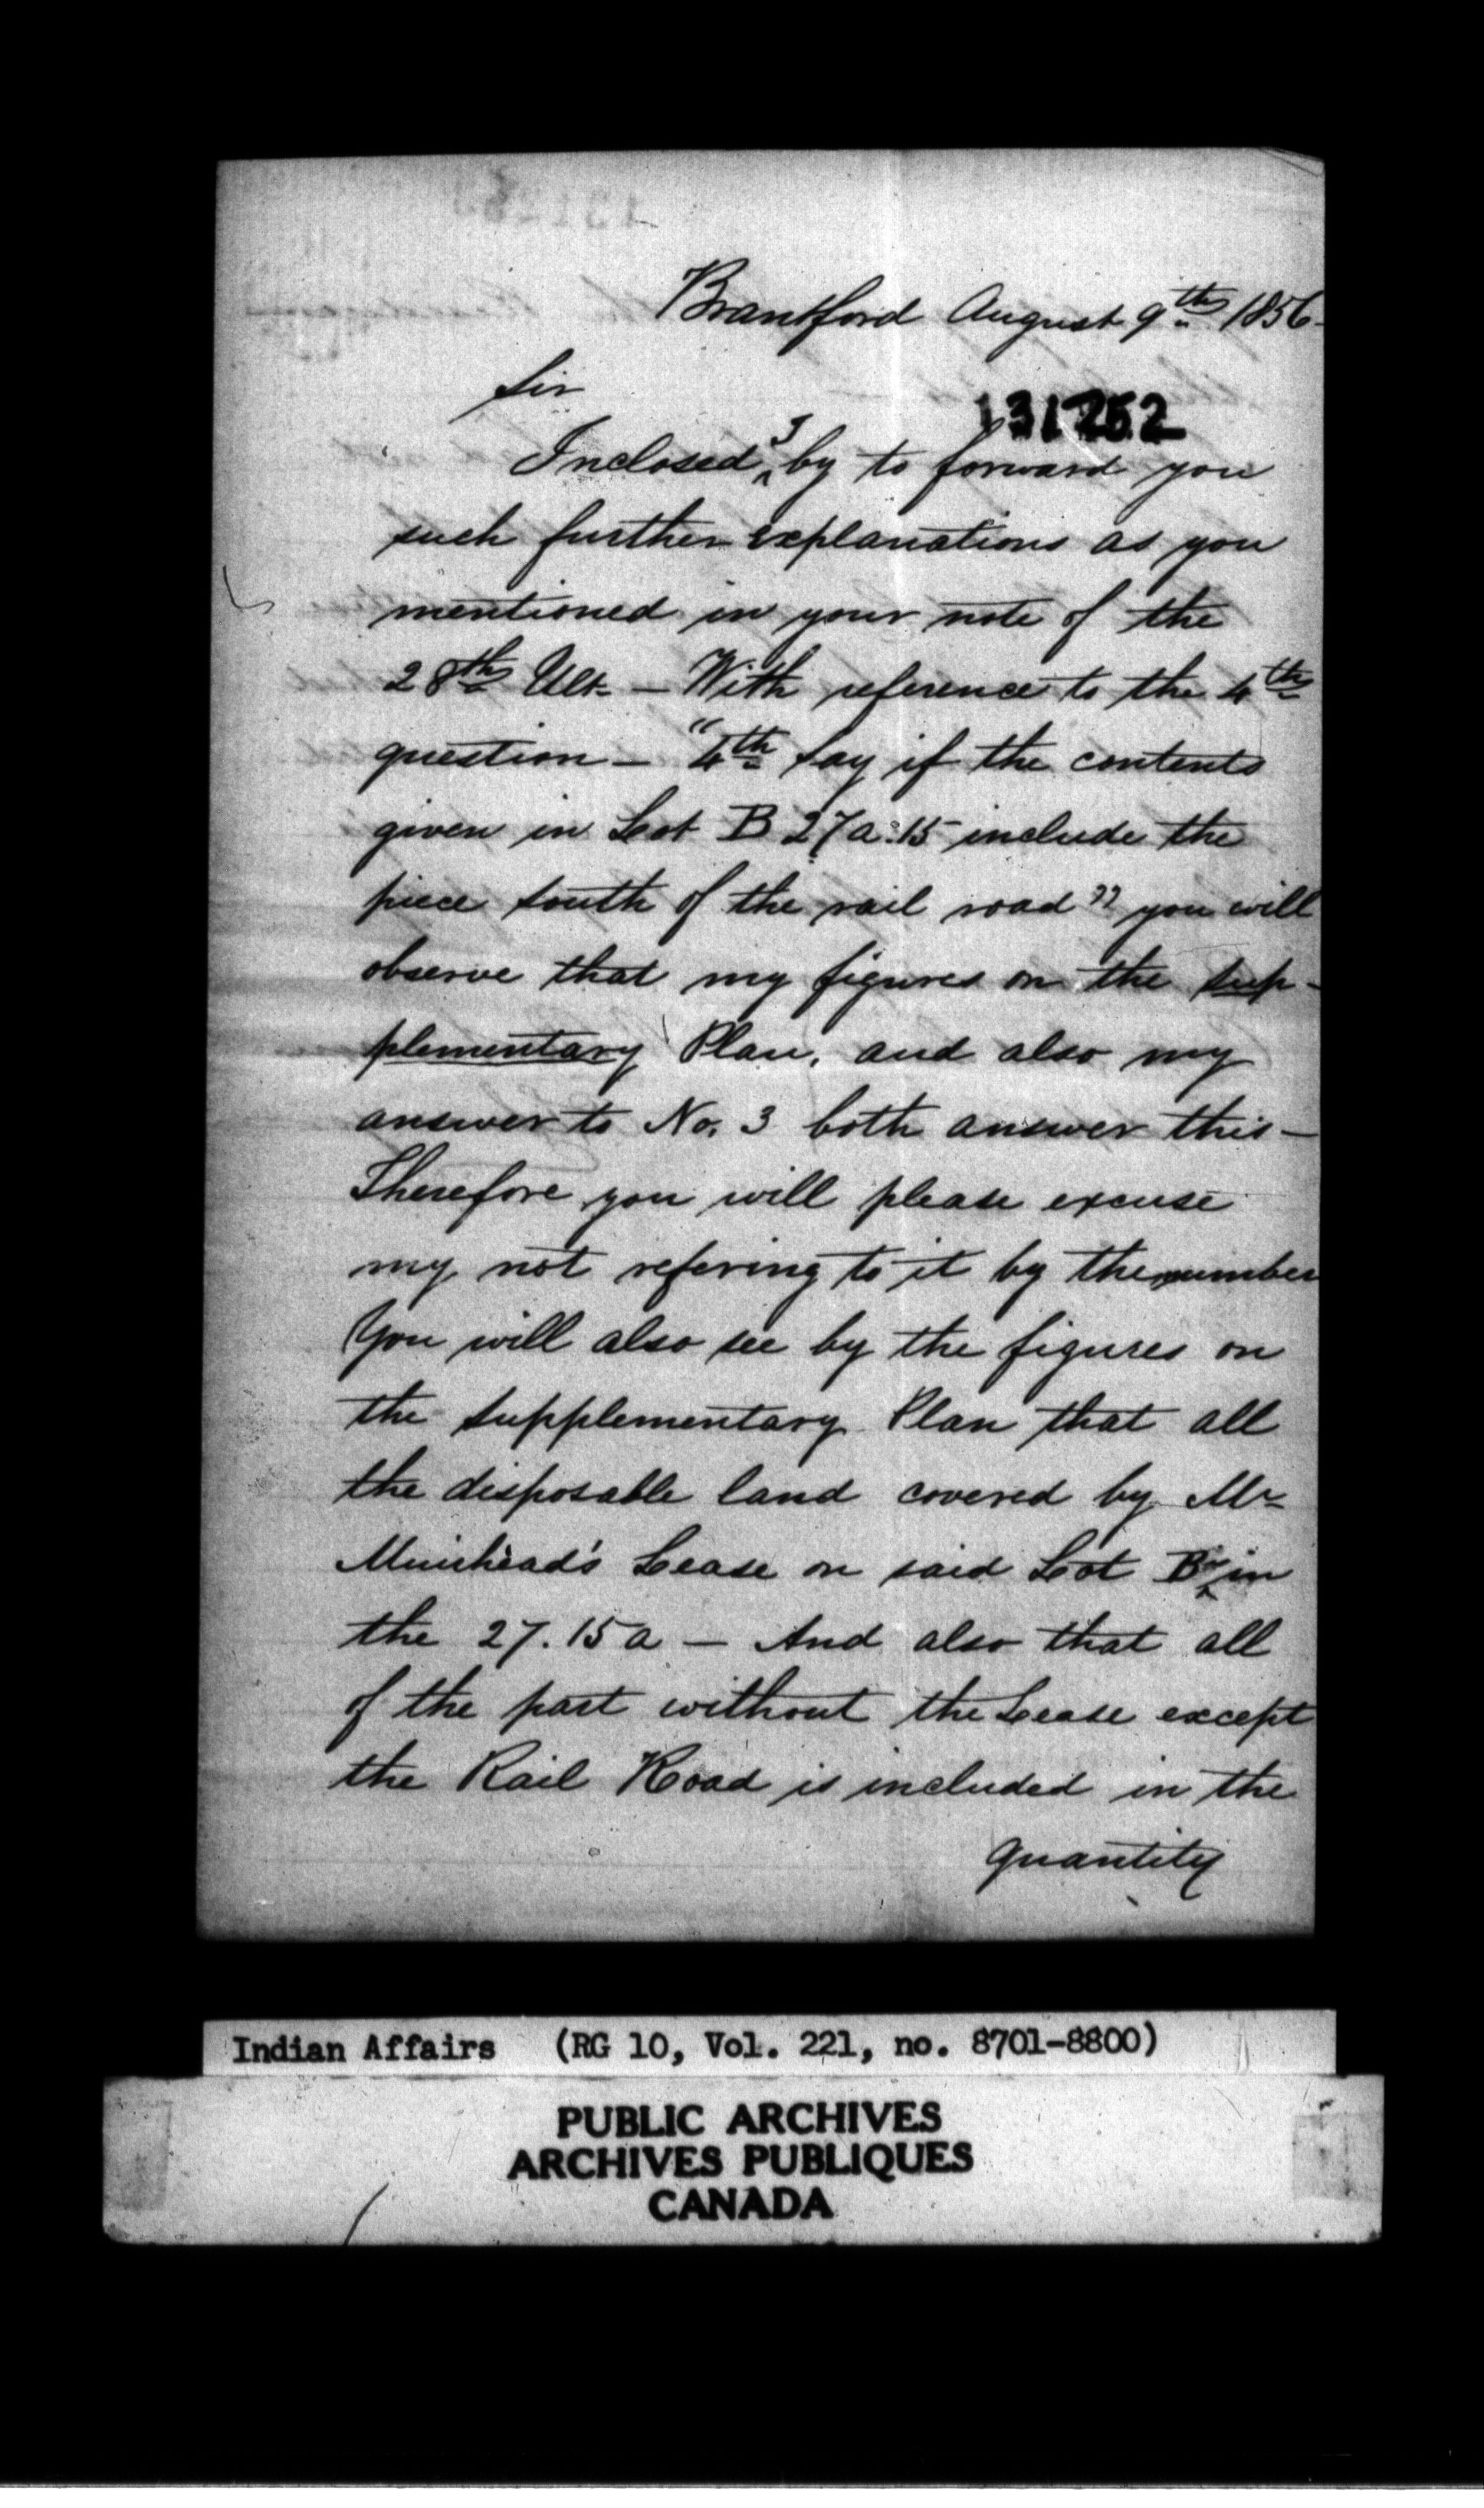 Brantford August 9th 1856-
Sir
131252
Inclosed I beg to forward you
such further explanations as you
mentioned in your note of the
28th Ult - With reference to the 4th
question - "4th Say if the contents
given in Lot B 27a.15 include the
piece South of the rail road" you will
observe that my figures on the sup-
plementary Plan, and also my
answer to No. 3 both answer this -
Therefore you will please excuse
my not refering to it by the number
You will also see by the figures on
the Supplementary Plan that all
the disposable land covered by Mr
Muirhead's Lease on said Lot B is in
the 27.15a - And also that all
of the part without the Lease except
the Rail Road is included in the
quantity
Indian Affairs (RG 10, Vol. 221, no. 8701-8800)
PUBLIC ARCHIVES
ARCHIVES PUBLIQUES
CANADA